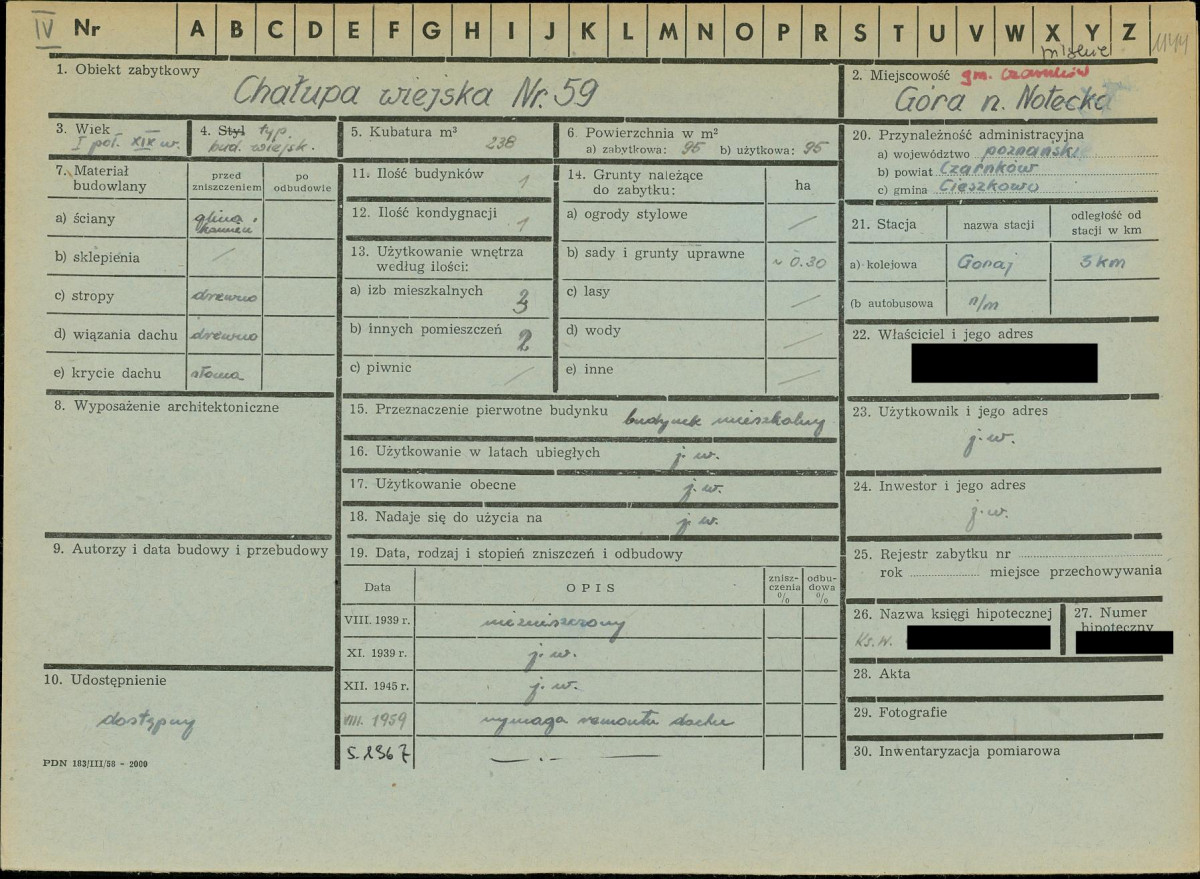 IV Nr A B C D E F G H I J K L M N O P R S T U V W X Y Z 1144
1. Obiekt zabytkowy
Chałupa wiejska Nr. 59
2. Miejscowość gm. Czarnków
Góra n. Notecką
3. Wiek
I poł. XIX w.
4. Styl typ.
bud. wiejsk.
5. Kubatura m³
238
6. Powierzchnia w m²
a) zabytkowa: 95 b) użytkowa: 95
7. Materiał budowlany
przed zniszczeniem
po odbudowie
a) ściany glina, kamień
b) sklepienia /
c) stropy drewno
d) wiązania dachu drewno
e) krycie dachu słoma
8. Wyposażenie architektoniczne
9. Autorzy i data budowy i przebudowy
10. Udostępnienie
dostępny
PDN 183/III/58 - 2000
11. Ilość budynków 1
12. Ilość kondygnacji 1
13. Użytkowanie wnętrza
według ilości:
a) izb mieszkalnych 3
b) innych pomieszczeń 2
c) piwnic /
14. Grunty należące
do zabytku: ha
a) ogrody stylowe /
b) sady i grunty uprawne ~ 0.30
c) lasy /
d) wody /
e) inne /
15. Przeznaczenie pierwotne budynku budynek mieszkalny
16. Użytkowanie w latach ubiegłych j. w.
17. Użytkowanie obecne j. w.
18. Nadaje się do użycia na j. w.
19. Data, rodzaj i stopień zniszczeń i odbudowy
Data OPIS znisz-czenia % odbu-dowa %
VIII. 1939 r. niezniszczony
XI. 1939 r. j. w.
XII. 1945 r. j. w.
VIII. 1959 wymaga remontu dachu
5. 1967 — . —
20. Przynależność administracyjna
a) województwo poznański
b) powiat Czarnków
c) gmina Cieszkowo
21. Stacja nazwa stacji odległość od stacji w km
a) kolejowa Goraj 3 km
(b autobusowa n/m
22. Właściciel i jego adres
23. Użytkownik i jego adres
j. w.
24. Inwestor i jego adres
j. w.
25. Rejestr zabytku nr
rok miejsce przechowywania
26. Nazwa księgi hipotecznej
Ks. w.
27. Numer
hipoteczny
28. Akta
29. Fotografie
30. Inwentaryzacja pomiarowa